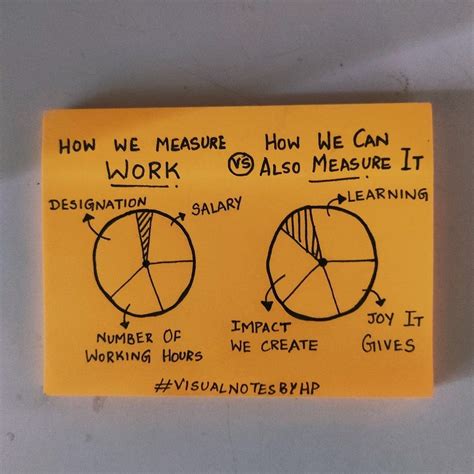 HOW WE MEASURE
WORK
VS
HOW WE CAN
ALSO MEASURE IT
DESIGNATION
SALARY
NUMBER OF
WORKING HOURS
LEARNING
IMPACT
WE CREATE
JOY IT
GIVES
#VISUALNOTESBYHP